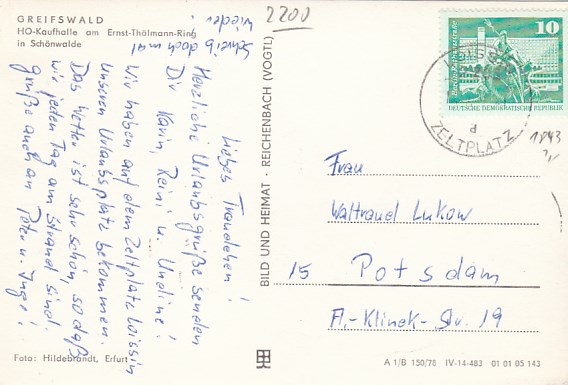 GREIFSWALD
HO-Kaufhalle am Ernst-Thälmann-Ring
in Schönwalde
2200
Schreib doch mal
wieder!
Liebes Traudchen!
Herzliche Urlaubsgrüße senden
Dir Karin, Reini u. Undine!
Wir haben auf dem Zeltplatz Loissin
unseren Urlaubsplatz bekommen.
Das Wetter ist sehr schön, so daß
wir jeden Tag am Strand sind.
Grüße auch an Peter u. Inge!
Foto: Hildebrandt, Erfurt
BILD UND HEIMAT · REICHENBACH (VOGTL)
10
DEUTSCHE DEMOKRATISCHE REPUBLIK
d
ZELTPLATZ
1843
Frau
Waltraud Lukow
15 Potsdam
A.-Klinek-Str. 19
A 1/B 150/78 IV-14-483 01 01 05 143